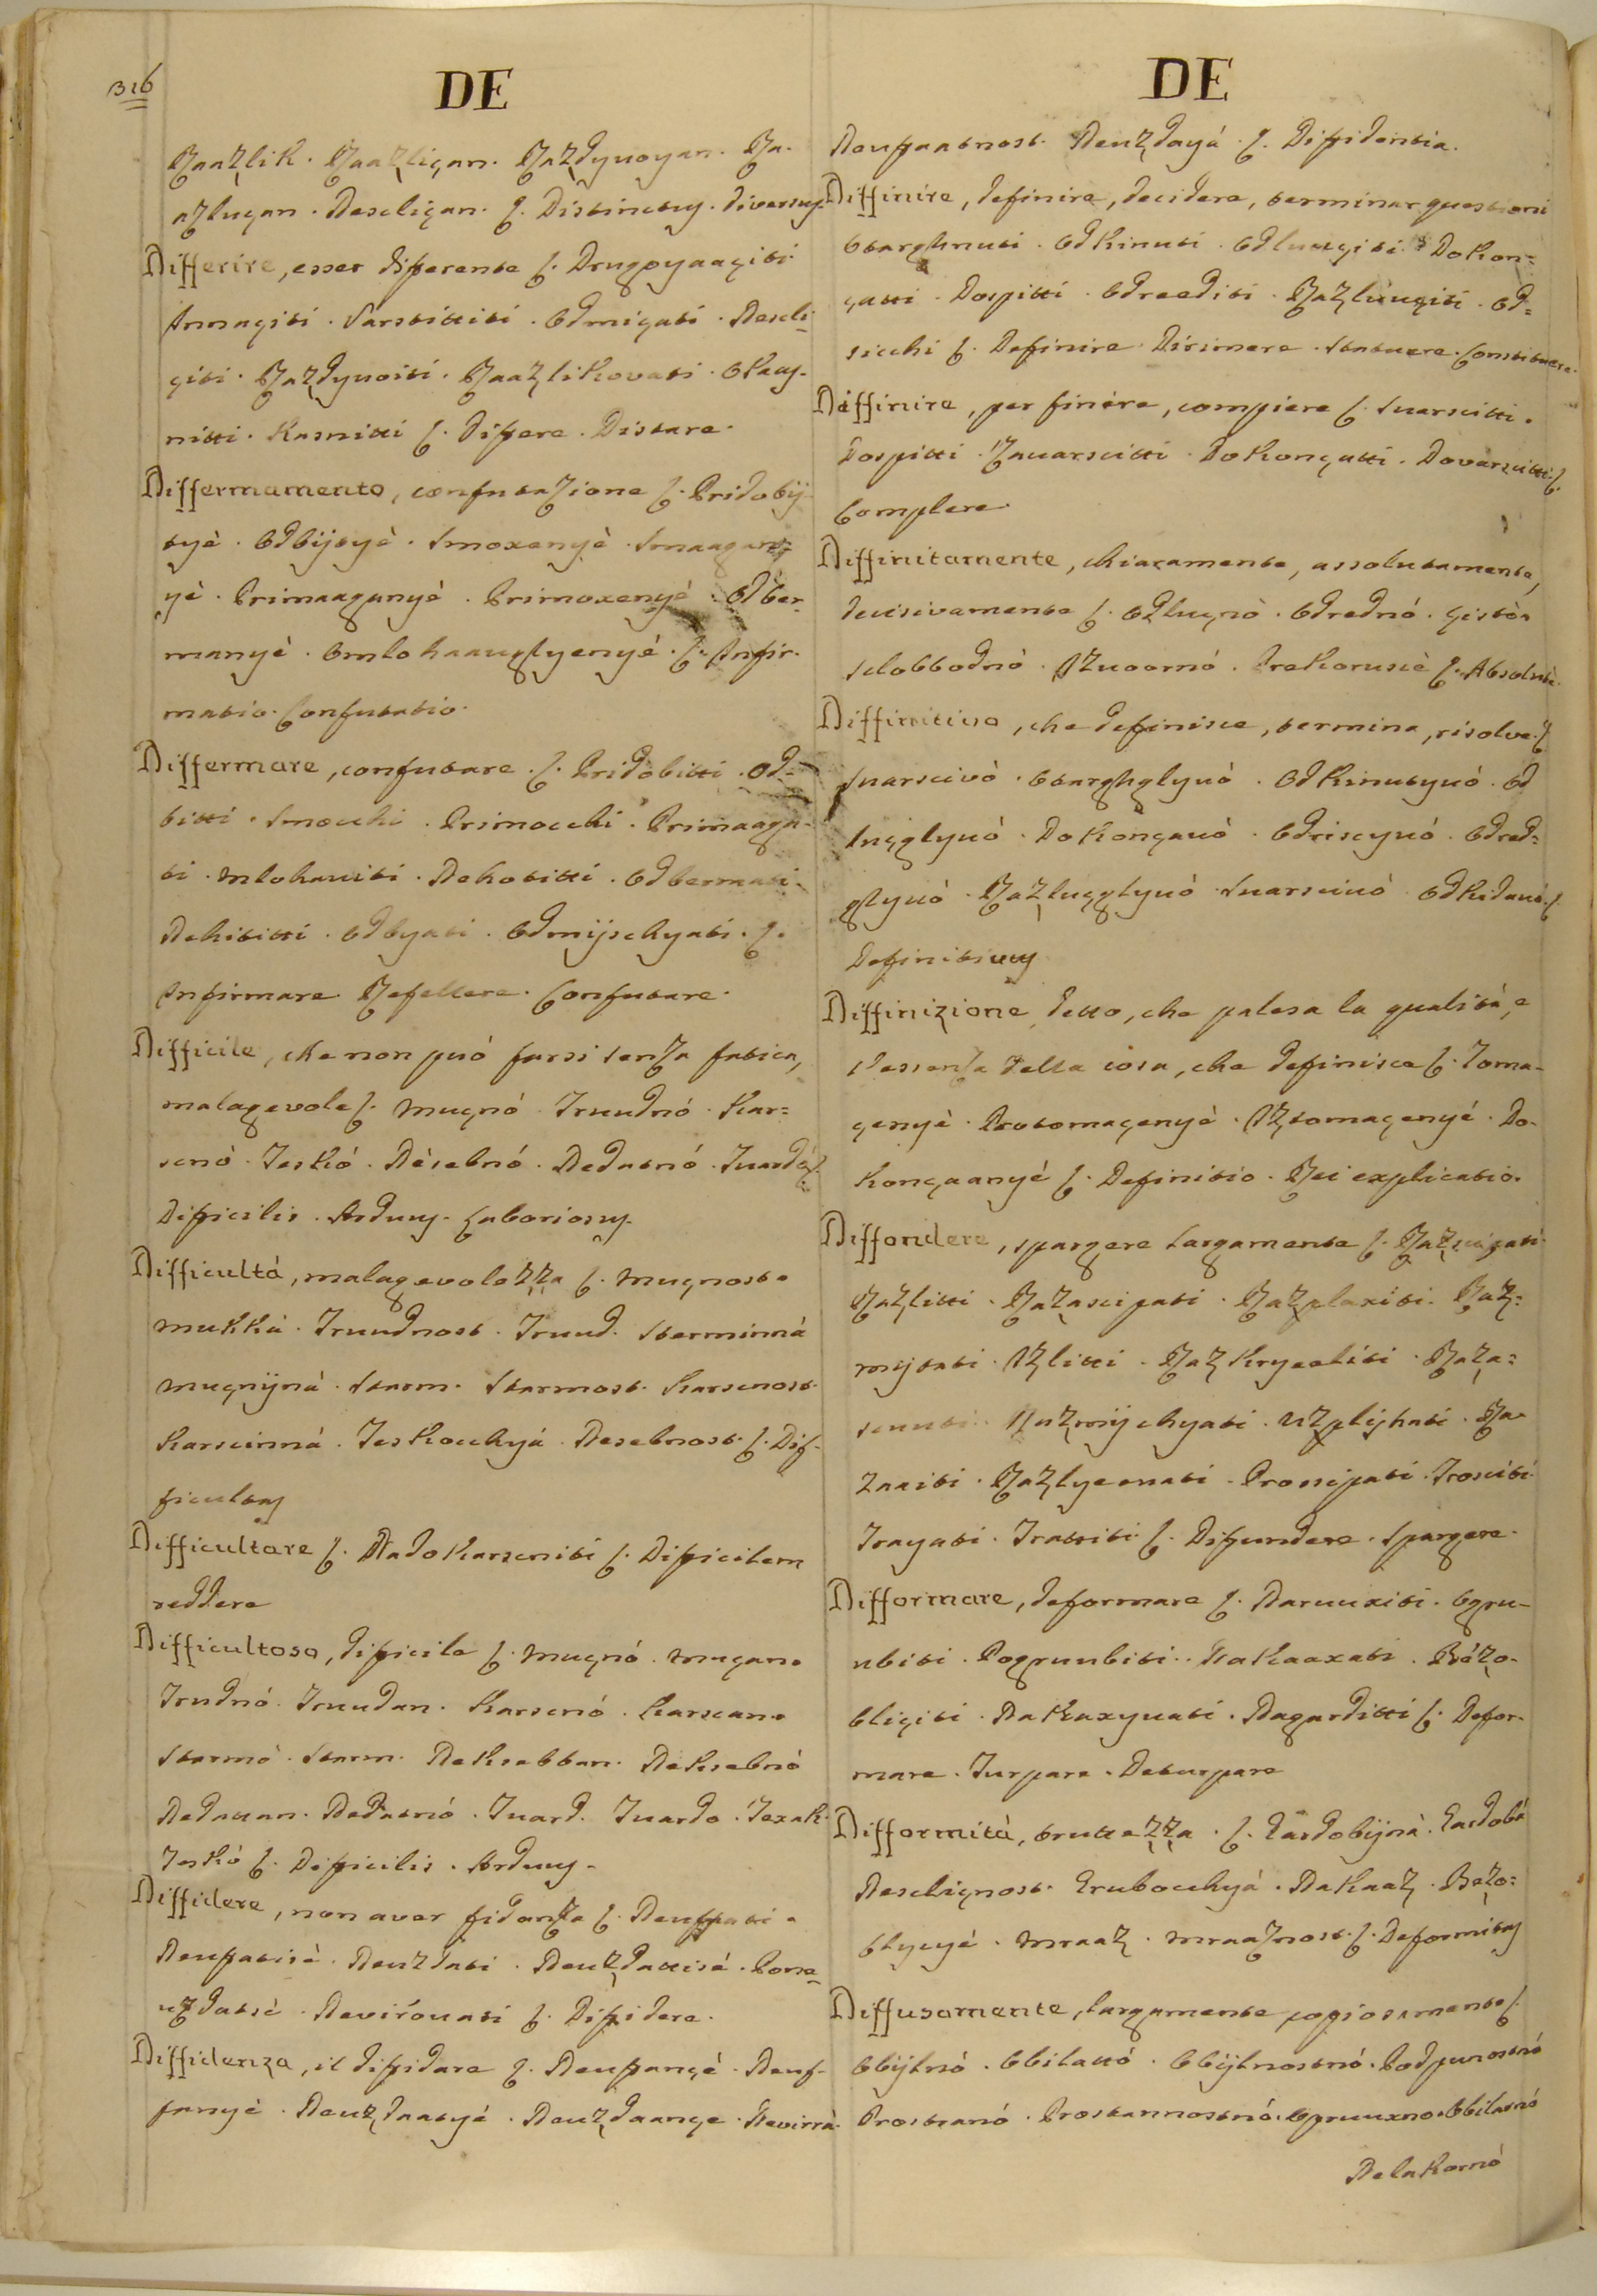 316
DE
Raaʒlik. Raaʒliçan. Raʒdyuoyan. Ra-
aʒluçan. Nescliçan. ʃ. Distinctus. diversus
Differire, esser differente ʃ. Drugoyaaçiti
Innaçiti. Varstittiti. Odmiçati. Nescli-
çiti. Raʒdyuoiti. Raaʒlikovati. Okaas-
nitti. Kasnitti ʃ. Differe. Distare.
Differmamento, confutazione ʃ. Pridobij-
tyè. Odbijtyè. Smoxenyè. Smaagan-
yè. Primaaganyè. Primoxenyè. Odber-
manyè. Omlohaauglyenyè. ʃ. Infir-
matio. Confutatio.
Differmare, confutare. ʃ. Pridobitti. Od-
bitti. Smocchi. Primocchi. Primaaga-
ti. Mlohaviti. Nehotitti. Odbermati.
Nehititti. Odbyati. Odmijschyati. ʃ.
Infirmare. Refellere. Confutare.
Difficile, che non può farsi senza fatica,
malagevole ʃ. Muçnó. Truudnó. Kar-
scnò. Teskó. Nèsebnó. Nedatnó. Tuardò ʃ.
Difficilis. Arduus. Laboriosus.
Difficultá, malagevolezza ʃ. Muçnost.
Mukká. Truudnost. Truud. Starminná
Muçnijná. Starm. Starmost. Karscnost.
Karscinná. Teskocchyá. Nesebnost. ʃ. Dif-
ficultas
Difficultare ʃ. Nadokarscniti ʃ. Difficilem
reddere
Difficultoso, difficile ʃ. Muçnó. Muçan.
Trudnó. Truudan. Karscnó. Karscan.
Starmò. Starm. Neksebban. Neksebnò
Nedattan. Nedatnó. Tuard. Tuardo. Texak.
Teskó ʃ. Difficilis. Arduus.
Diffidere, non aver fidanza ʃ. Neuffati.
Neufatisè. Neuzdati. Neuʒdattisè. Pone-
uʒdatsè. Nevirouati ʃ. Diffidere.
Diffidenza, il diffidare ʃ. Neufançè. Neuf-
fanyè. Neuʒdaatyè. Neuʒdaançe. Nevirrà.
DE
Neufaatnost. Neuʒdayá. ʃ. Diffidentia.
Diffinire, definire, decidere, terminar questioni
Otarghnuti. Odkinuti. Odluuçiti. Dokon-
çatti. Dospitti. Odreediti. Raʒluuçiti. Od-
sicchi ʃ. Definire. Dirimere. Statuere. Constituere.
Diffinire, per finire, compiere ʃ. Suarscitti.
Dospitti. Zauarscitti. Dokonçatti. Dovarscitti. ʃ.
Complere.
Diffinitamente, chiaramente, assolutamente,
decisivamente ʃ. Odluçnò. Odrednó. Çistò.
Slobbodnò. Iʒuoornó. Prekorusciè ʃ. Absolutè.
Diffinitivo, che definisce, termina, risolve. ʃ
Suarscivò. Otarghglyuò. Odkinutyuó. Od
luçglyuò. Dokonçauò. Odriscyuò. Odred-
glyuò. Raʒluçglyuò. Suarsciuò. Odkidauó. ʃ.
Definitivus
Diffinizione, detto, che palesa la qualità, e
l'essenza della cosa, che definisce ʃ. Toma-
çenyè. Protomaçenyè. Iʒtomaçenyé. Do-
konçaanyé ʃ. Definitio. Rei explicatio.
Diffondere, spargere largamente ʃ. Raʒscipati.
Raʒlitti. Raʒascipati. Raʒplaxiti. Raʒ-
mijtati. Iʒlitti. Raʒkryeeliti. Raʒa-
snuti. Raʒmijchyati. Uʒplijhati. Ra-
ʒaaiti. Raʒlyeenati. Prossipati. Trosciti.
Trayati. Trattiti. ʃ. Diffundere. Spargere.
Difformare, deformare ʃ. Naruuxiti. Ogru-
ubiti. Pogruubiti. Nakaaxati. Bézo-
bliçiti. Nakaxyuati. Nagarditti ʃ. Defor-
mare. Turpare. Deturpare
Difformità, bruttezza. ʃ. Gardobijná. Gardobá
Nescliçnost. Grubocchyá. Nakaaʒ. Bezo-
blyçyè. Mraaʒ. Mraaʒnost. ʃ. Deformitas
Diffusamente, largamente, copiosamente ʃ.
Obijlnó. Obilattó. Obijlnostnó. Podpunostnó
Prostranó. Prostannostnó. Opruuxno. Obilatnó
Nelakomò